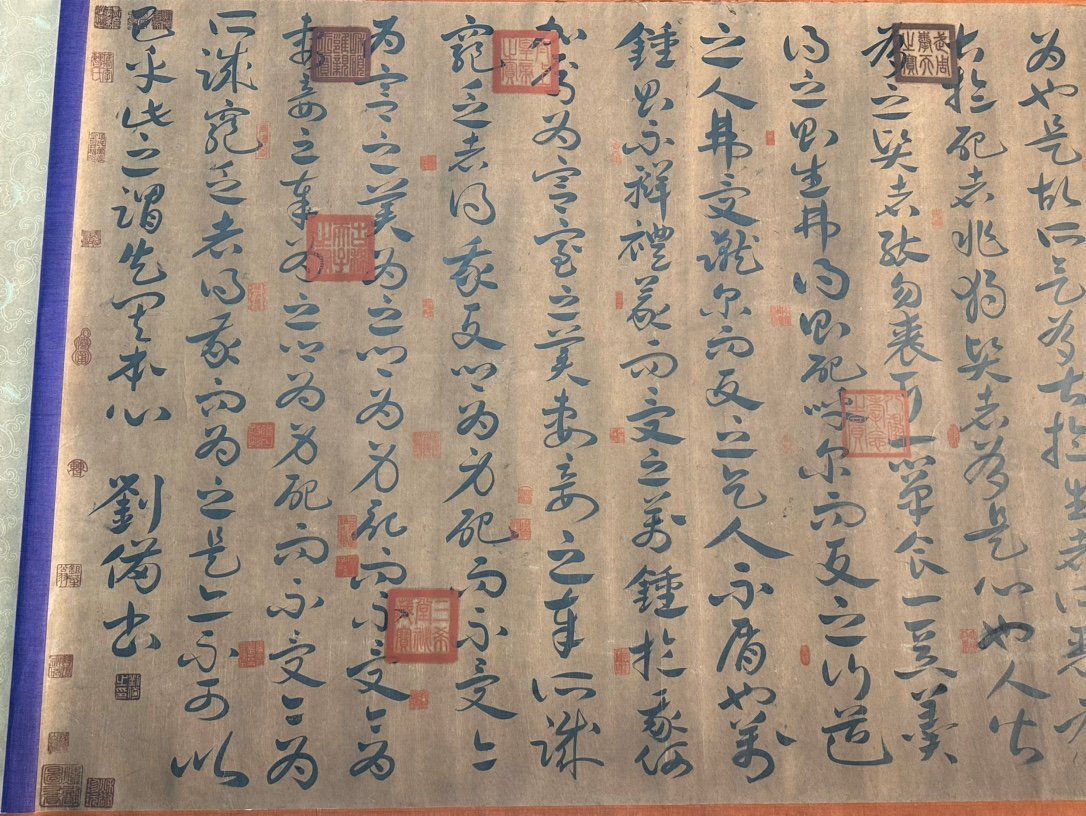 為也是故所欲有甚於生者所惡有
甚於死者非獨賢者有是心也人皆
有之賢者能勿喪耳一簞食一豆羹
得之則生弗得則死嘑爾而與之行道
之人弗受蹴爾而與之乞人不屑也萬
鍾則不辨禮義而受之萬鍾於我何
加焉為宮室之美妻妾之奉所識
窮乏者得我與鄉為身死而不受今
為宮室之美為之鄉為身死而不受今為
妻妾之奉為之鄉為身死而不受今為
所識窮乏者得我而為之是亦不可以
已乎此之謂失其本心
劉備书